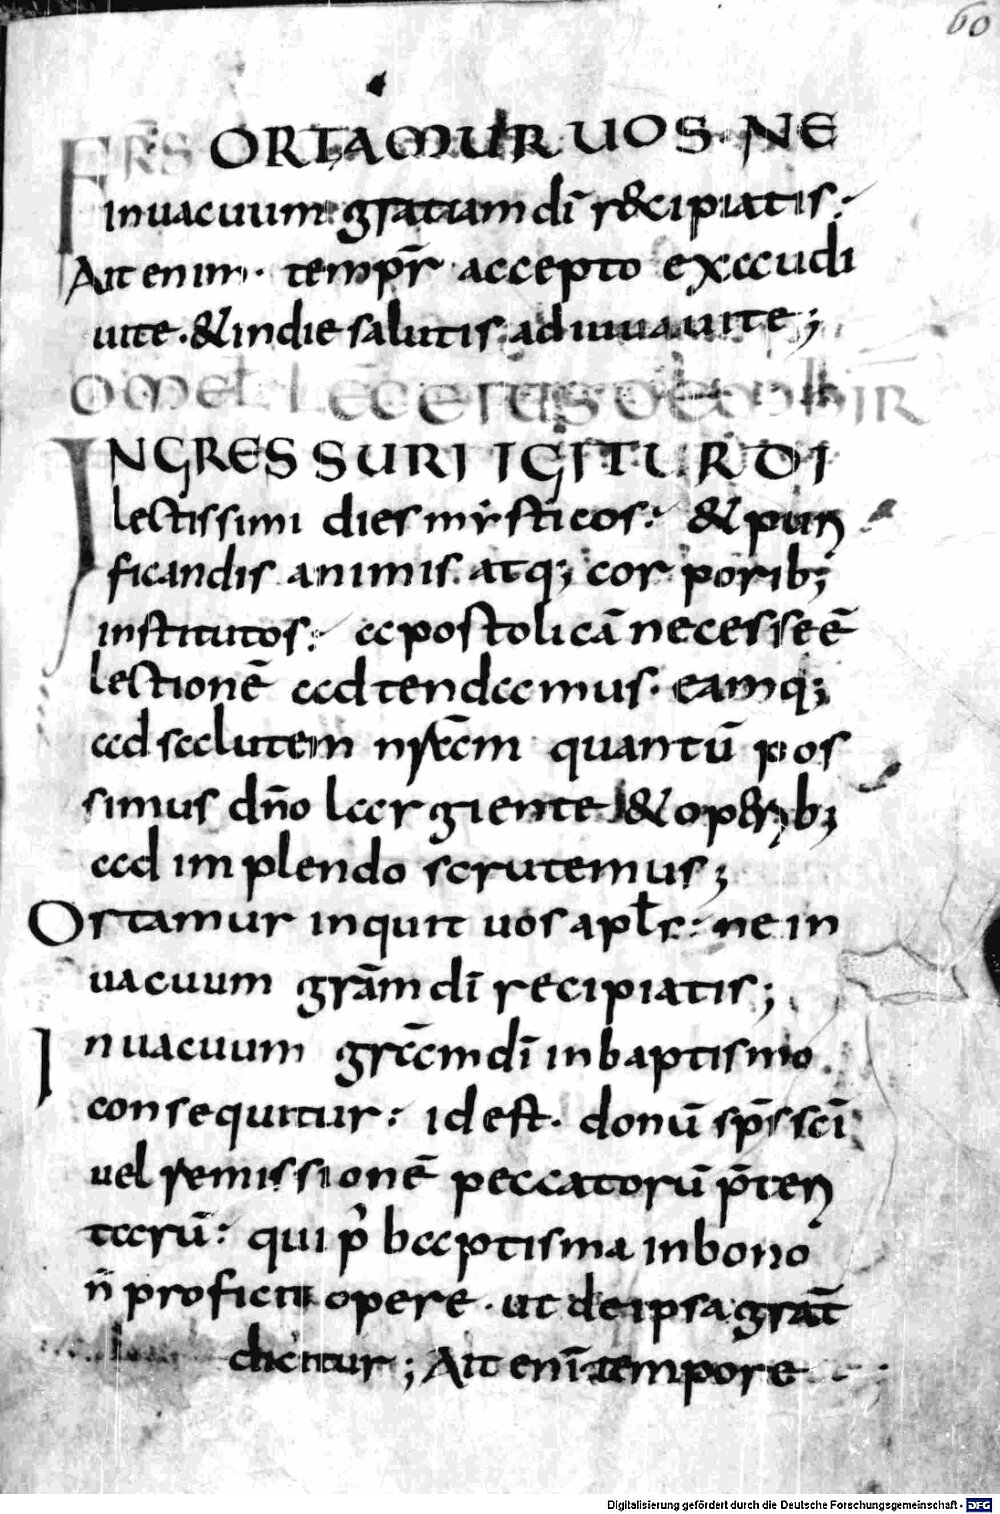 60
FRS ORTAMUR UOS. NE
inuacuum gratiam dī recipiatis:
Ait enim. tempr̄ accepto exaudi
uite. & indie salutis adiuua uite;
OMEL LEC EIUS
INGRESSURI IGITUR DI
lectissimi dies mysticos: & puri
ficandis animis. atq; corporib;
institutos: apostolicā necesseē
lectionē adtendamus. eamq;
ad salutem nr̄am quantū pos
simus dn̄o largiente & operib;
ad implendo scrutemus;
Ortamur inquit uos apl̄s: ne in
uacuum grām dī recipiatis;
In uacuum grām dī inbaptismo
consequitur: id est. donū sp̄s scī
uel remissionē peccatorū p̄teri
tarū: qui p' baptisma inbono
n̄ proficit opere. ut deipsa grāt
dicitur; Ait enī tempore
Digitalisierung gefördert durch die Deutsche Forschungsgemeinschaft - DFG